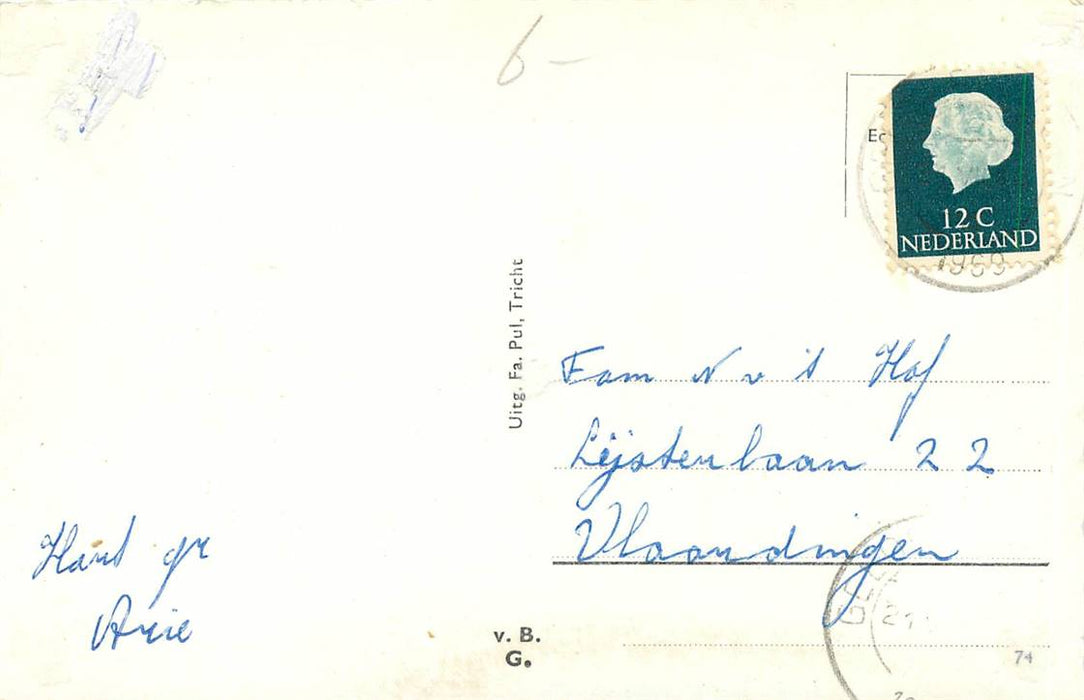 6-
Ec
12 C
NEDERLAND
1969
Uitg. Fa. Pul, Tricht
Fam N v 't Hof
Lijsterbaan 22
Vlaardingen
Hart gr
Arie
v. B.
G.
21
74